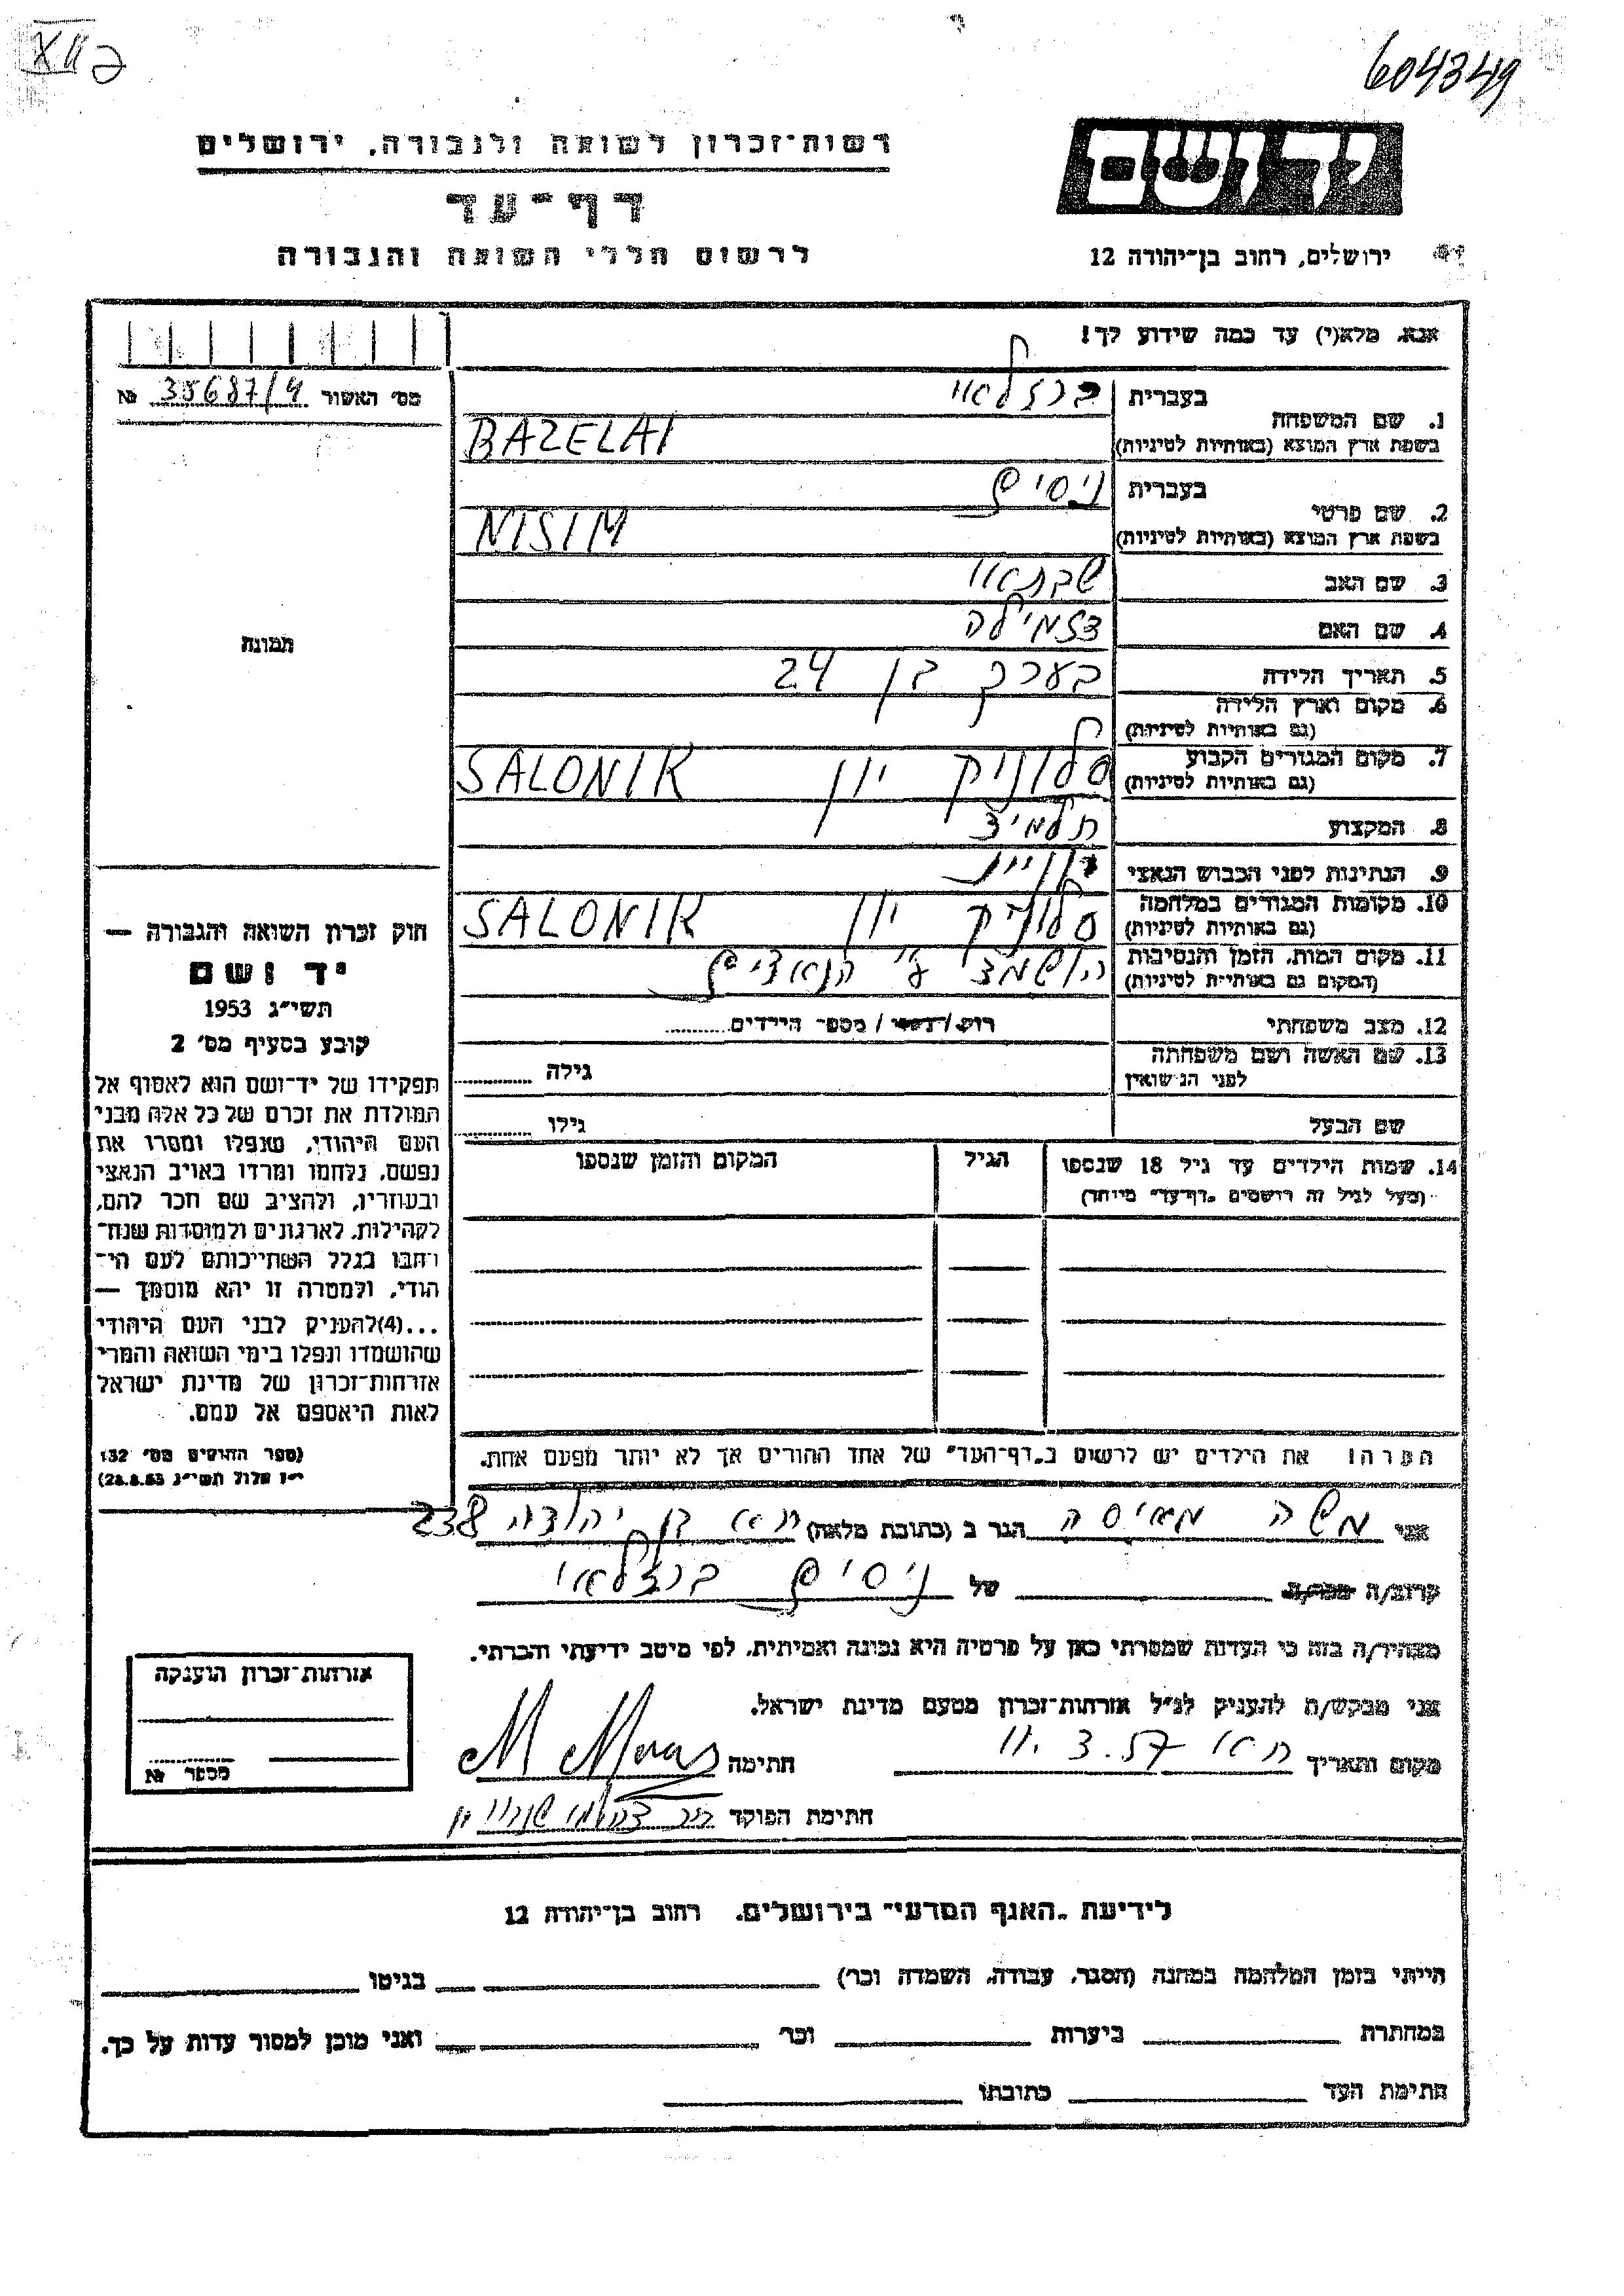 604349
רשות־זכרון לשואה ולגבורה, ירושלים
דף־עד
לרשום חללי השואה והגבורה
יד ושם
ירושלים, רחוב בן־יהודה 12
אנא, מלא(י) עד כמה שידוע לך!
מס׳ האשור 35687/4 №
תמונה
בעברית ברזלאי
1. שם המשפחה
בשפת ארץ המוצא (באותיות לטיניות) BAZELAI
בעברית ניסים
2. שם פרטי
בשפת ארץ המוצא (באותיות לטיניות) NISIM
3. שם האב שבתאי
4. שם האם ג׳מילה
5. תאריך הלידה בערך בן 24
6. מקום וארץ הלידה
(גם באותיות לטיניות)
7. מקום המגורים הקבוע סלוניק יון SALONIK
(גם באותיות לטיניות)
8. המקצוע תלמיד
9. הנתינות לפני הכבוש הנאצי יוונית
10. מקומות המגורים במלחמה סלוניק יון SALONIK
(גם באותיות לטיניות)
11. מקום המות, הזמן והנסיבות הושמד ע״י הנאצים
(המקום גם באותיות לטיניות)
12. מצב משפחתי רווק/נשוי/ מספר הילדים
13. שם האשה ושם משפחתה גילה
לפני הנישואין
שם הבעל גילו
14. שמות הילדים עד גיל 18 שנספו הגיל המקום והזמן שנספו
(מעל לגיל זה רושמים „דף־עד״ מיוחד)
חוק זכרון השואה והגבורה —
יד ושם
תשי״ג 1953
קובע בסעיף מס׳ 2
תפקידו של יד־ושם הוא לאסוף אל
המולדת את זכרם של כל אלה מבני
העם היהודי, שנפלו ומסרו את
נפשם, נלחמו ומרדו באויב הנאצי
ובעוזריו, ולהציב שם וזכר להם,
לקהילות, לארגונים ולמוסדות שנח־
רבו בגלל השתייכותם לעם הי־
הודי, ולמטרה זו יהא מוסמך —
...(4)להעניק לבני העם היהודי
שהושמדו ונפלו בימי השואה והמרי
אזרחות־זכרון של מדינת ישראל
לאות היאספם אל עמם.
(ספר החוקים מס׳ 132
י״ז אלול תשי״ג 28.8.53)
הערה! את הילדים יש לרשום ב„דף־העד״ של אחד ההורים אך לא יותר מפעם אחת.
אני משה מאיסה הגר ב (כתובת מלאה) ת״א בן יהודה 238
קרוב/ה מכר/ה של ניסים ברזלאי
מצהיר/ה בזה כי העדות שמסרתי כאן על פרטיה היא נכונה ואמיתית, לפי מיטב ידיעתי והכרתי.
אני מבקש/ת להעניק לנ״ל אזרחות־זכרון מטעם מדינת ישראל.
מקום ותאריך ת״א 11.3.57 חתימה
חתימת הפוקד
אזרחות־זכרון הוענקה
מספר №
לידיעת „האגף המדעי״ בירושלים, רחוב בן־יהודה 12
הייתי בזמן המלחמה במחנה (הסגר, עבודה, השמדה וכו׳) בגיטו
במחתרת ביערות וכו׳ ואני מוכן למסור עדות על כך.
חתימת העד כתובתו